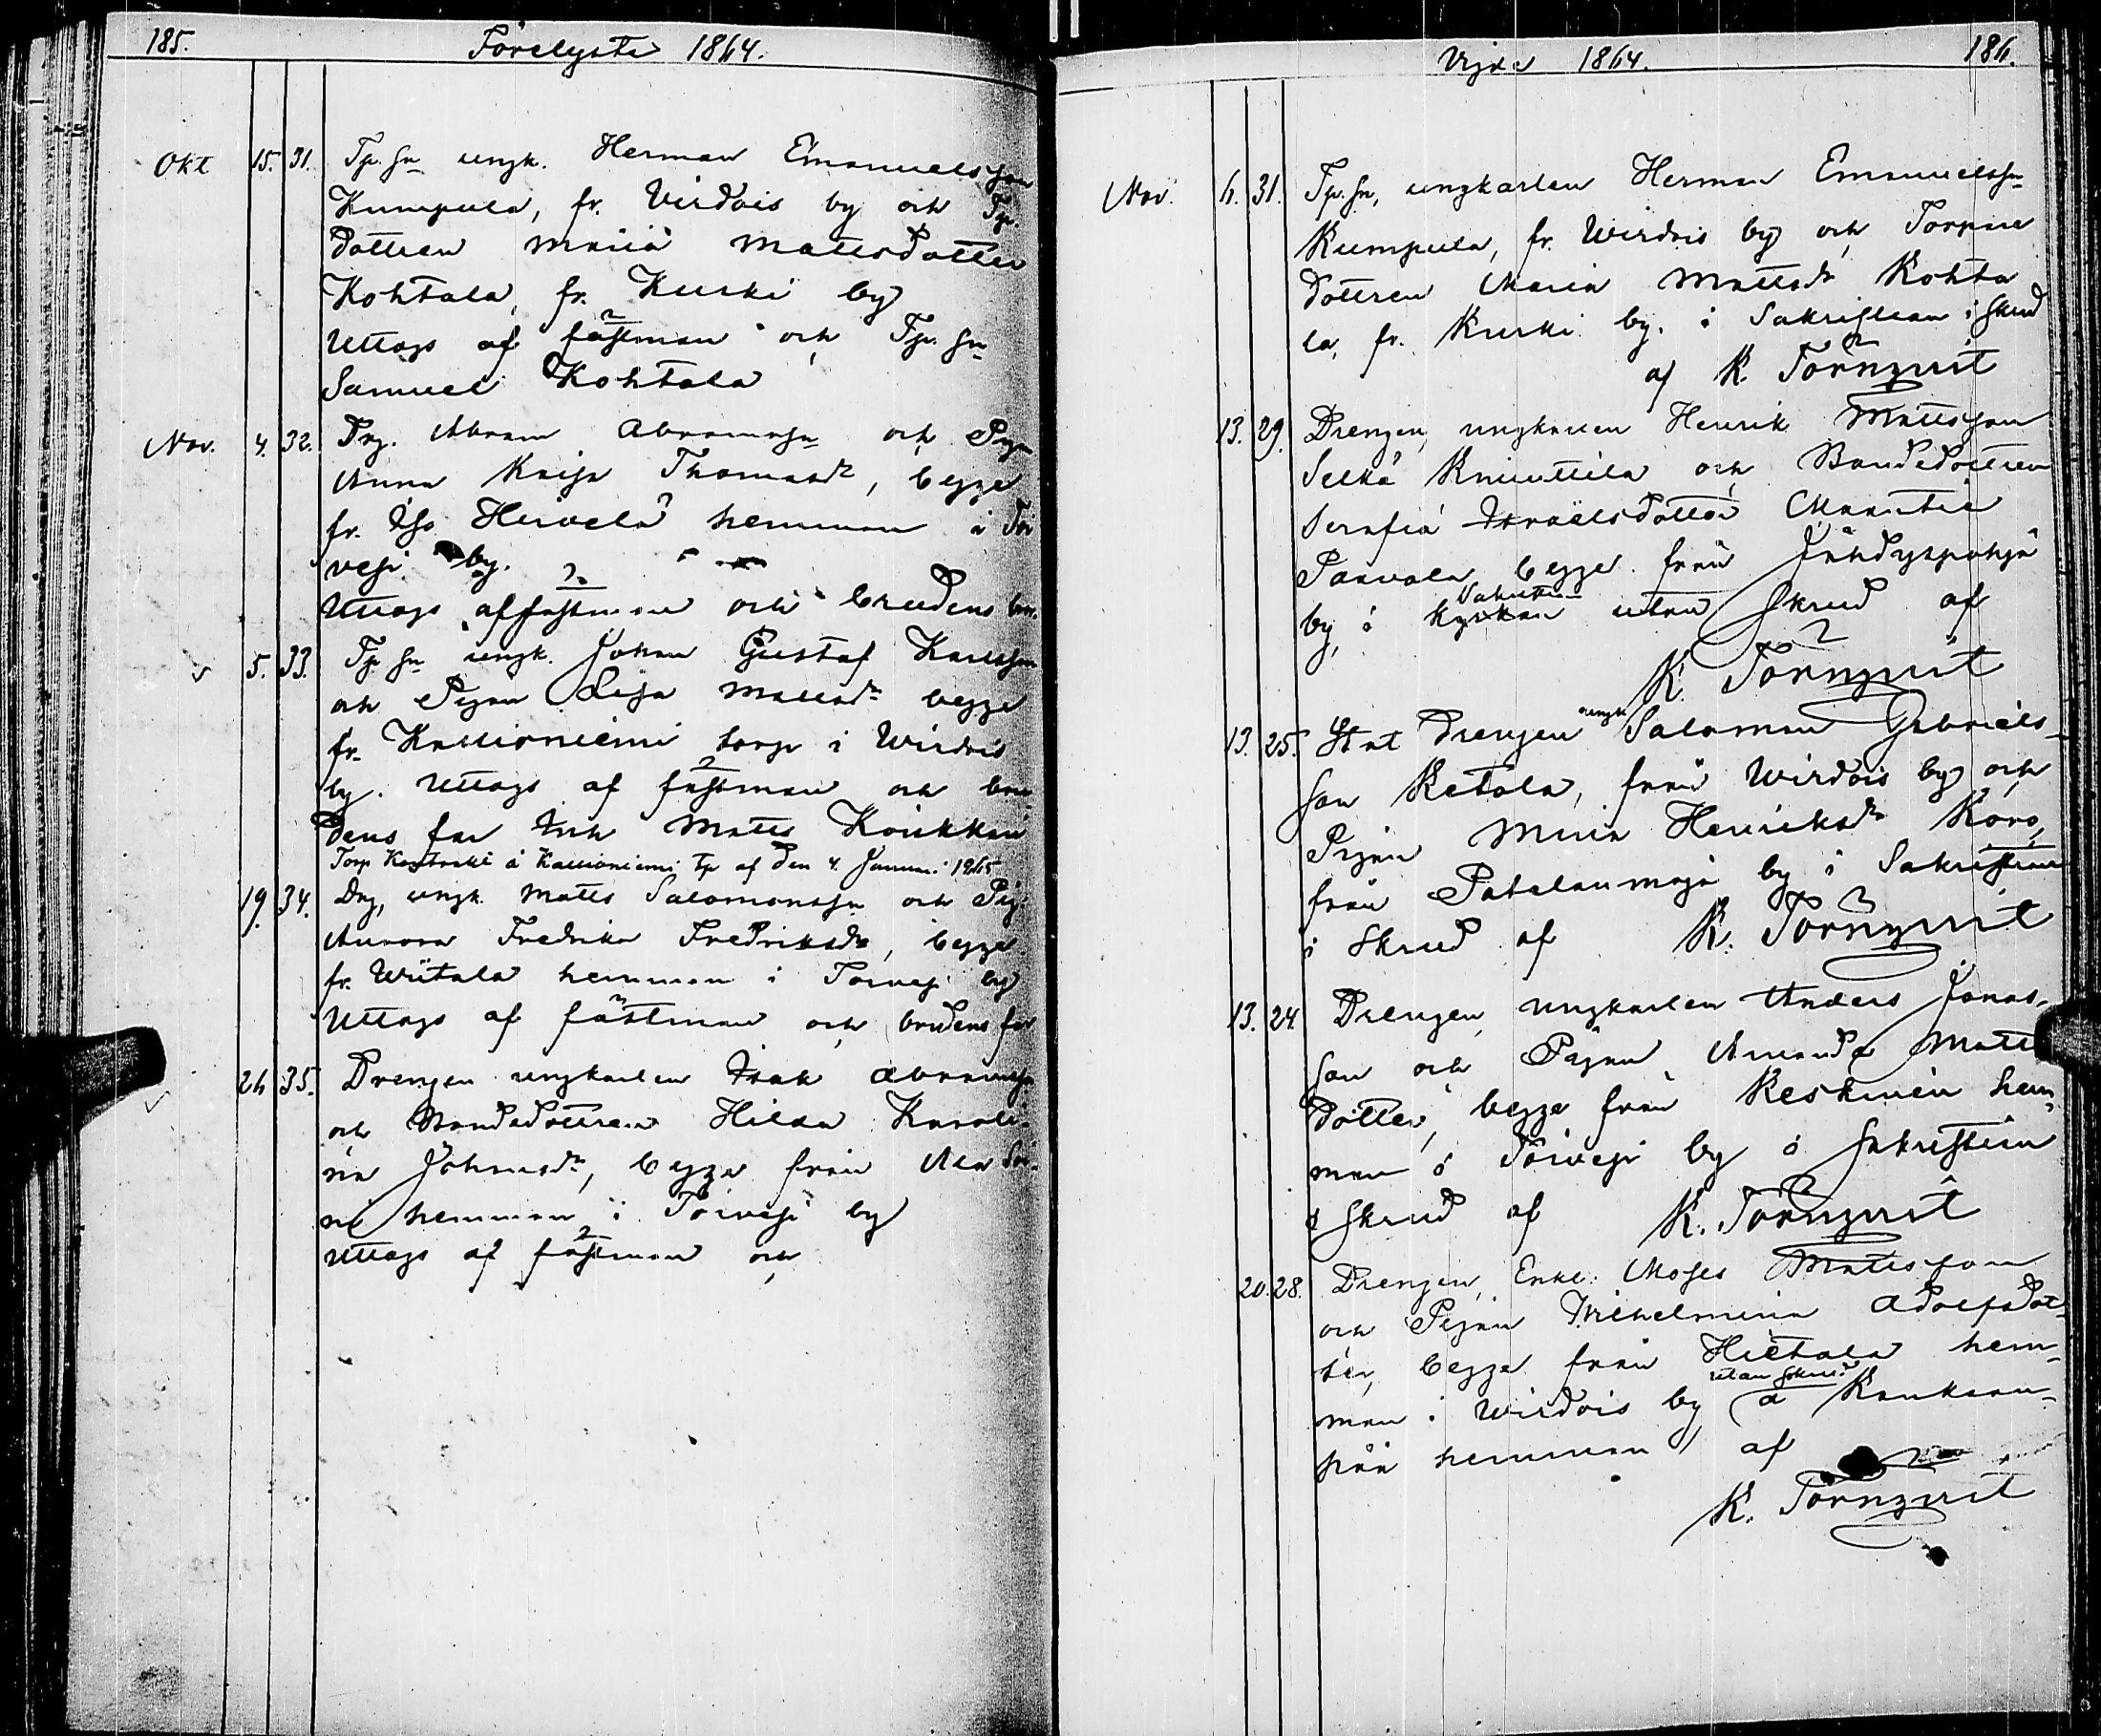 185. Förelyste 1864.
Okt 15. 31. Tp. sn ungk. Herman Emanuelsson
Kumpula, fr. Virdois by och Tp.
dottren Maria Mattsdotter
Kohtala, fr. Kurki by
Uttags af fästman och Tp. sn
Samuel Kohtala
Nov. 4. 32. Drg. Abram Abramssn och Pig.
Anna Kaisa Thomasdr, begge
fr. Iso Hirvelä hemman i Toi
vesi by.
Uttags af fästman och brudens
5. 33. Tp sn ungk. Johan Gustaf Karlsson
och Pigan Lisa Mattsdr begge
fr. Kallioniemi torp i Wirdois
by. Uttags af fästman och bru
dens far Matts Koukkari
Torp Kontrakt å Kallioniemi Tp af den 4 Januari 1865
19. 34. Drg, ungk. Matts Salomonssn och Pig.
Aurora Fredrika Fredriksdr, begge
fr. Wiitala hemman i Toivesi by
Uttags af fästman och brudens far
26 35. Drengen ungkarlen Isak Abramssn
och Bondedottren Hilda Karoli
na Johansdr, begge från Ala Soi
ni hemman i Toivesi by
Uttags af fästman och
Vigde 1864. 186.
Nov. 6. 31. Tp. sn, ungkarlen Herman Emanuelssn
Kumpula, fr. Wirdois by och Torpare
dottren Maria Mattsdr Kohta
la, fr. Kurki by. i Sakristian i skrud
af K. Törnqvist
13. 29. Drengen, ungkarlen Henrik Mattsson
Selkä Knuuttila och Bondedottren
Serafia Israëlsdotter
Paavola, begge från Jäädyspohja
by, i kyrkan utan skrud af
K. Törnqvist
13. 25. Drengen ungk Salomon Gabriels-
son Ketola, från Wirdois by och
Pigan Maria Henriksdr Koro,
från Patalanmaja by i Sakristian
i Skrud af K. Törnqvist
13. 24. Drengen, ungkarlen Anders Jonas-
son och Pigan, Amanda Matts
dotter, begge från Keskinen hem-
man i Toivesi by i sakristian
i skrud af K. Törnqvist
20. 28. Drengen, Enkl. Moses Mattsson
och Pigan Wilhelmina Adolfsdot-
ter, begge från Hietala hem-
utan skrud
man i Wirdois by å Kankaan-
pää hemman af
K. Törnqvist